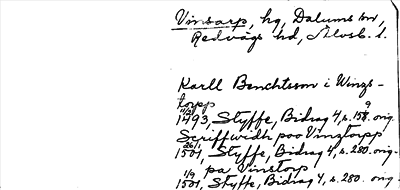 Vinsarp, hg, Dalums sn,
Redvägs hd, Älvsb. l.
Karll Benchtsson i Winzs-
torpp
1493, Styffe, Bidrag 4, s. 159. orig.
Scriffwidh poo Vinztorpp
26/1 1501, Styffe, Bidrag 4, s. 280. orig.
pa Vinstorp
1/9 1501, Styffe, Bidrag 4, s. 280. orig.